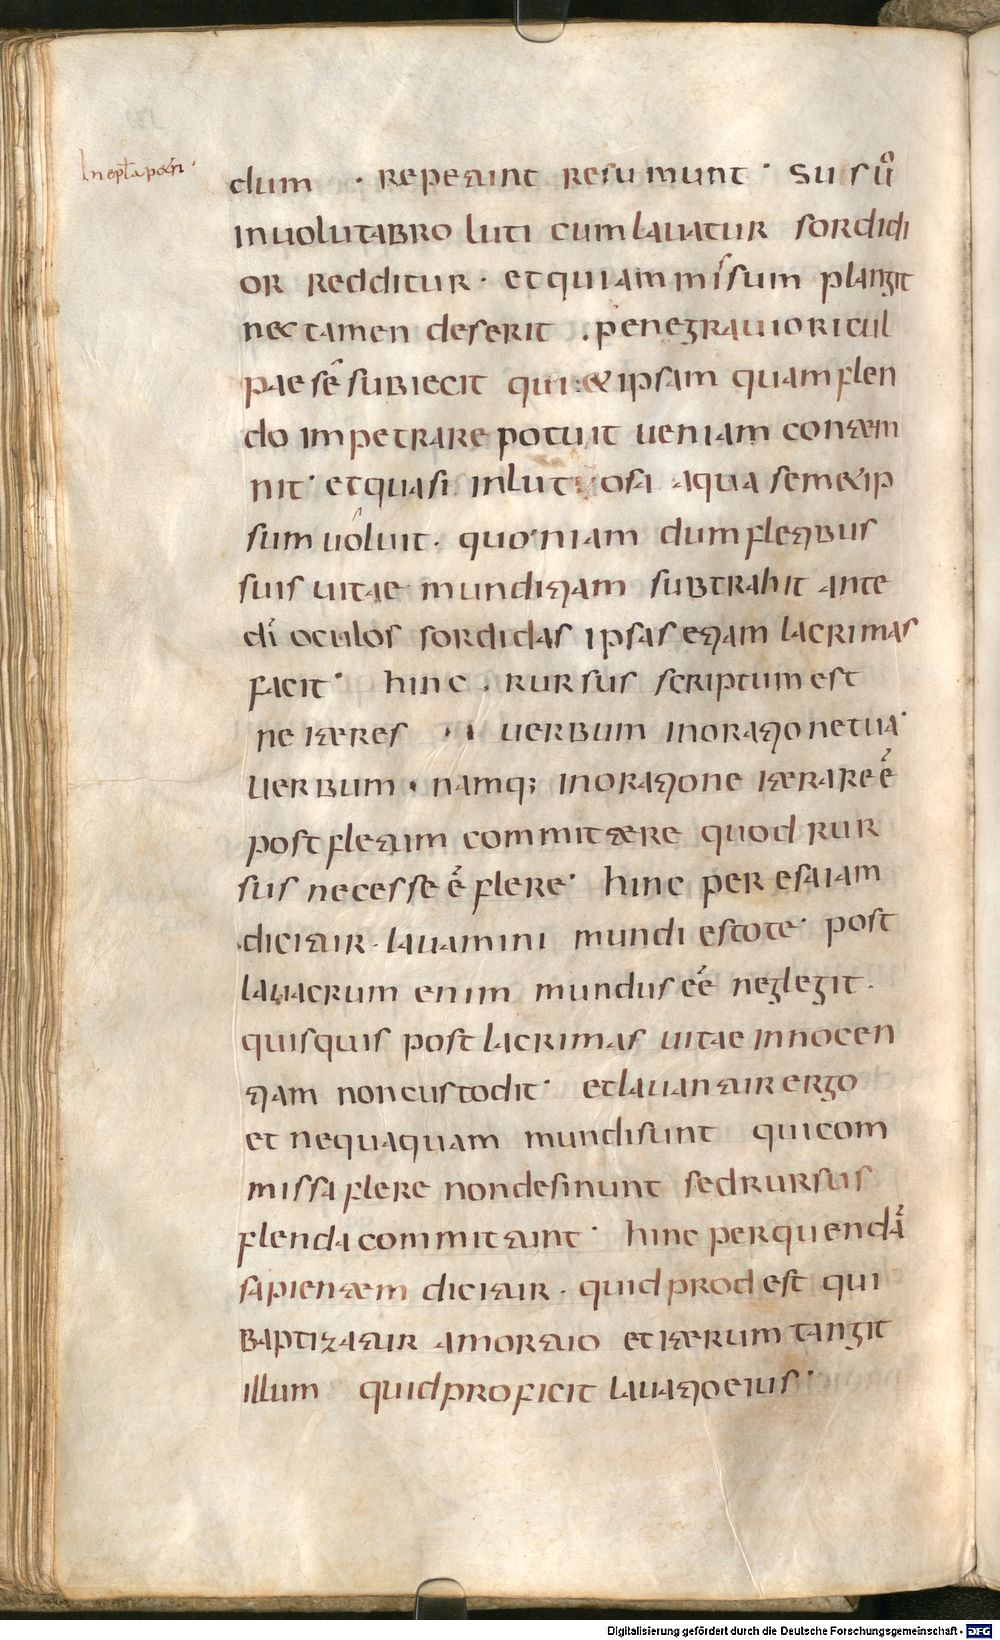 In epła petri·
dum · repetunt resumunt · Sus ū
in uolutabro luti cum lauatur sordidi
or redditur · et qui ammissum plangit
nec tamen deserit . pene grauiori cul
pae sē subiecit qui et ipsam quam flen
do impetrare potuit ueniam contem
nit · et quasi in lutuosa aqua semet ip
sum uoluit · quoniam dum fletibus
suis uitae munditiam subtrahit ante
dī oculos sordidas ipsas etiam lacrimas
facit · hinc . rursus scriptum est
ne iteres · uerbum in oratione tua ·
uerbum · namq; in oratione iterare ē
post fletum committere quod rur
sus necesse ē flere · hinc per esaiam
dicitur · lauamini mundi estote · post
lauacrum enim mundus eē neglegit ·
quisquis post lacrimas uitae innocen
tiam non custodit · et lauantur ergo
et nequaquam mundi sunt qui com
missa flere non desinunt sed rursus
flenda committunt · hinc per quendā
sapientem dicitur · quid prodest qui
baptizatur a mortuo et iterum tangit
illum quid proficit lauatio eius ·
Digitalisierung gefördert durch die Deutsche Forschungsgemeinschaft - DFG